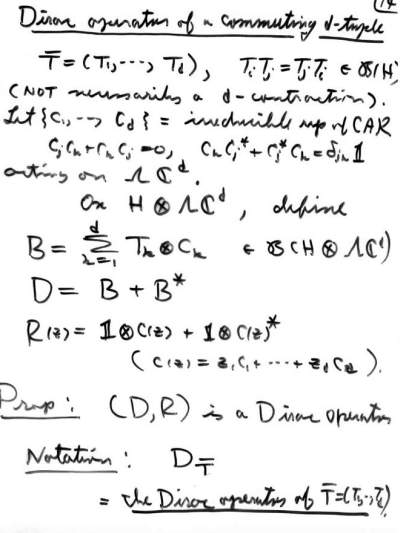 14
Dirac operator of a commuting d-tuple
T̄ = (T₁, ---, T_d), T_i T_j = T_j T_i ∈ B(H)
(NOT necessarily a d-contraction).
Let {C₁, --, C_d} = irreducible rep of CAR
C_j C_k + C_k C_j = 0, C_k C_j* + C_j* C_k = δ_jk 𝟙
acting on Λ ℂ^d.
On H ⊗ Λℂ^d, define
B = Σ_{k=1}^{d} T_k ⊗ C_k ∈ B(H ⊗ Λℂ^d)
D = B + B*
R(z) = 𝟙 ⊗ C(z) + 𝟙 ⊗ C(z)*
(C(z) = z₁C₁ + ··· + z_d C_d).
Prop: (D, R) is a Dirac operator
Notation: D_T̄
= the Dirac operator of T̄ = (T₁, -, T_d)